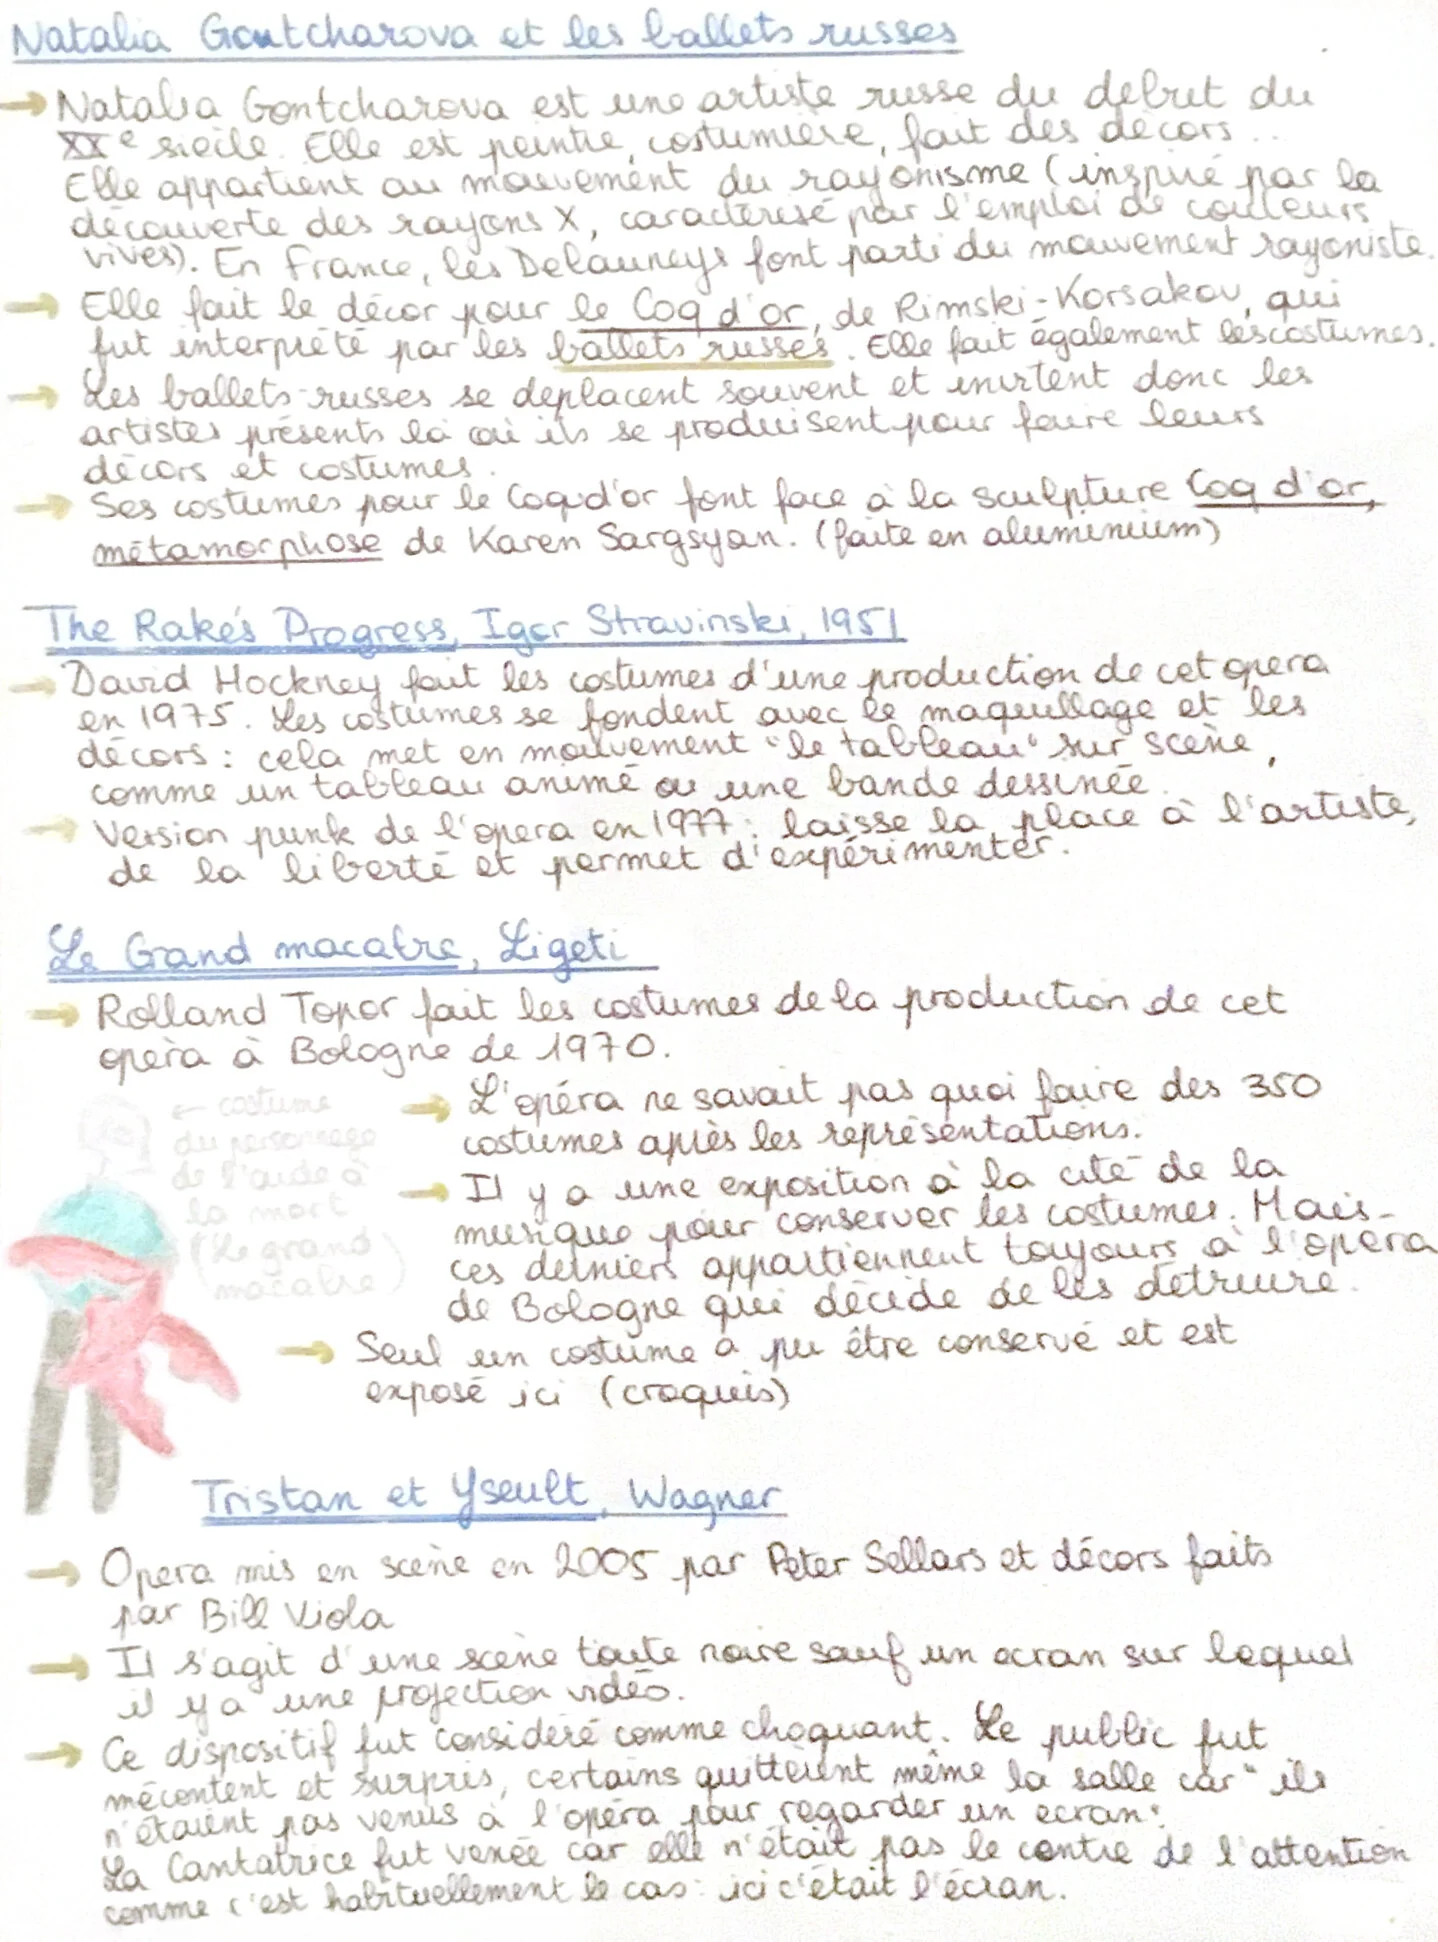 Natalia Gontcharova et les ballets russes
→ Natalia Gontcharova est une artiste russe du debut du
XXe siècle. Elle est peintre, costumière, fait des décors...
Elle appartient au mouvement du rayonisme (inspiré par la
découverte des rayons X, caractérisé par l'emploi de couleurs
vives). En France, les Delauneys font parti du mouvement rayoniste.
→ Elle fait le décor pour le Coq d'or, de Rimski-Korsakov, qui
fut interprété par les ballets russes. Elle fait également les costumes.
→ Les ballets-russes se deplacent souvent et invitent donc les
artistes présents là où ils se produisent pour faire leurs
décors et costumes.
→ Ses costumes pour le Coq d'or font face à la sculpture Coq d'or,
métamorphose de Karen Sargsyan. (faite en aluminium)
The Rake's Progress, Igor Stravinski, 1951
→ David Hockney fait les costumes d'une production de cet opera
en 1975. Les costumes se fondent avec le maquillage et les
décors : cela met en mouvement "le tableau" sur scène,
comme un tableau animé ou une bande dessinée.
→ Version punk de l'opera en 1977 : laisse la place à l'artiste,
de la liberté et permet d'expérimenter.
Le Grand macabre, Ligeti
→ Rolland Topor fait les costumes de la production de cet
opera à Bologne de 1970.
→ L'opéra ne savait pas quoi faire des 350
costumes après les représentations.
→ Il y a une exposition à la cité de la
musique pour conserver les costumes. Mais
ces derniers appartiennent toujours à l'opéra
de Bologne qui décide de les détruire.
← costume
du personnage
de l'aide à
la mort
(Le grand
macabre)
→ Seul un costume a pu être conservé et est
exposé ici (croquis)
Tristan et Yseult, Wagner
→ Opera mis en scène en 2005 par Peter Sellars et décors faits
par Bill Viola
→ Il s'agit d'une scène toute noire sauf un ecran sur lequel
il y a une projection vidéo.
→ Ce dispositif fut consideré comme choquant. Le public fut
mécontent et surpris, certains quittèrent même la salle car "ils
n'étaient pas venus à l'opéra pour regarder un ecran".
La Cantatrice fut vexée car elle n'était pas le centre de l'attention
comme c'est habituellement le cas : ici c'était l'écran.